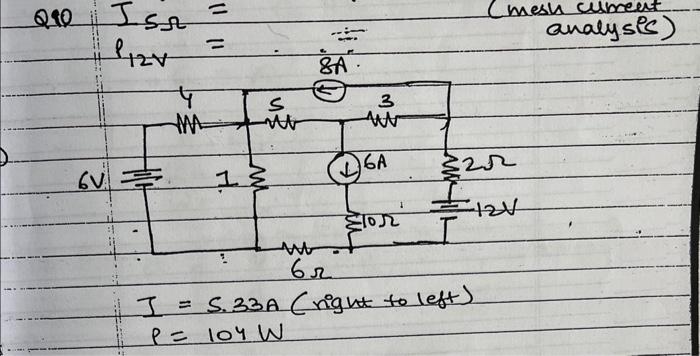 Q10 I 5Ω = (mesh current
P12V = analysis)
8A
4 5 3
6V 1 6A 2Ω
10Ω 12V
6Ω
I = 5.33A (right to left)
P = 104 W